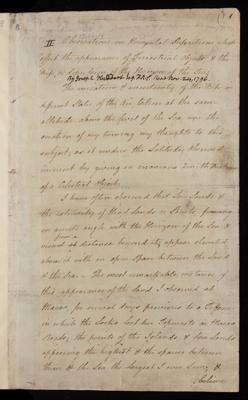 II Observations on Horizontal Refractions which
affect the appearance of Terrestrial Objects & the
Dip, or Depression of the Horizon of the Sea.
By Joseph Huddart Esq. F.R.S. Read Nov. 24, 1796.
The variation & uncertainty of the Dip in
different States of the Air, taken at the same
altitude above the level of the Sea, was the
occasion of my turning my thoughts to this
subject, as it renders the Latitude observed
erroneous by giving an erroneous Zenith
of a Celestial Object.
I have often observed that Low Lands &
the extremity of Head Lands or Points, forming
an acute angle with the Horizon of the Sea &
viewed from a distance beyond it, appear elevated
above it with an open Space between the Land
& the Sea. The most remarkable instance of
this appearance of the Land I observed at
Macao for several days previous to a Typhoon
in which the Locko lost her Topmasts in Macao
Roads, the points of the Islands & Low Lands
appearing the highest & the spaces between
them & the Sea the largest I ever saw; &
I believe